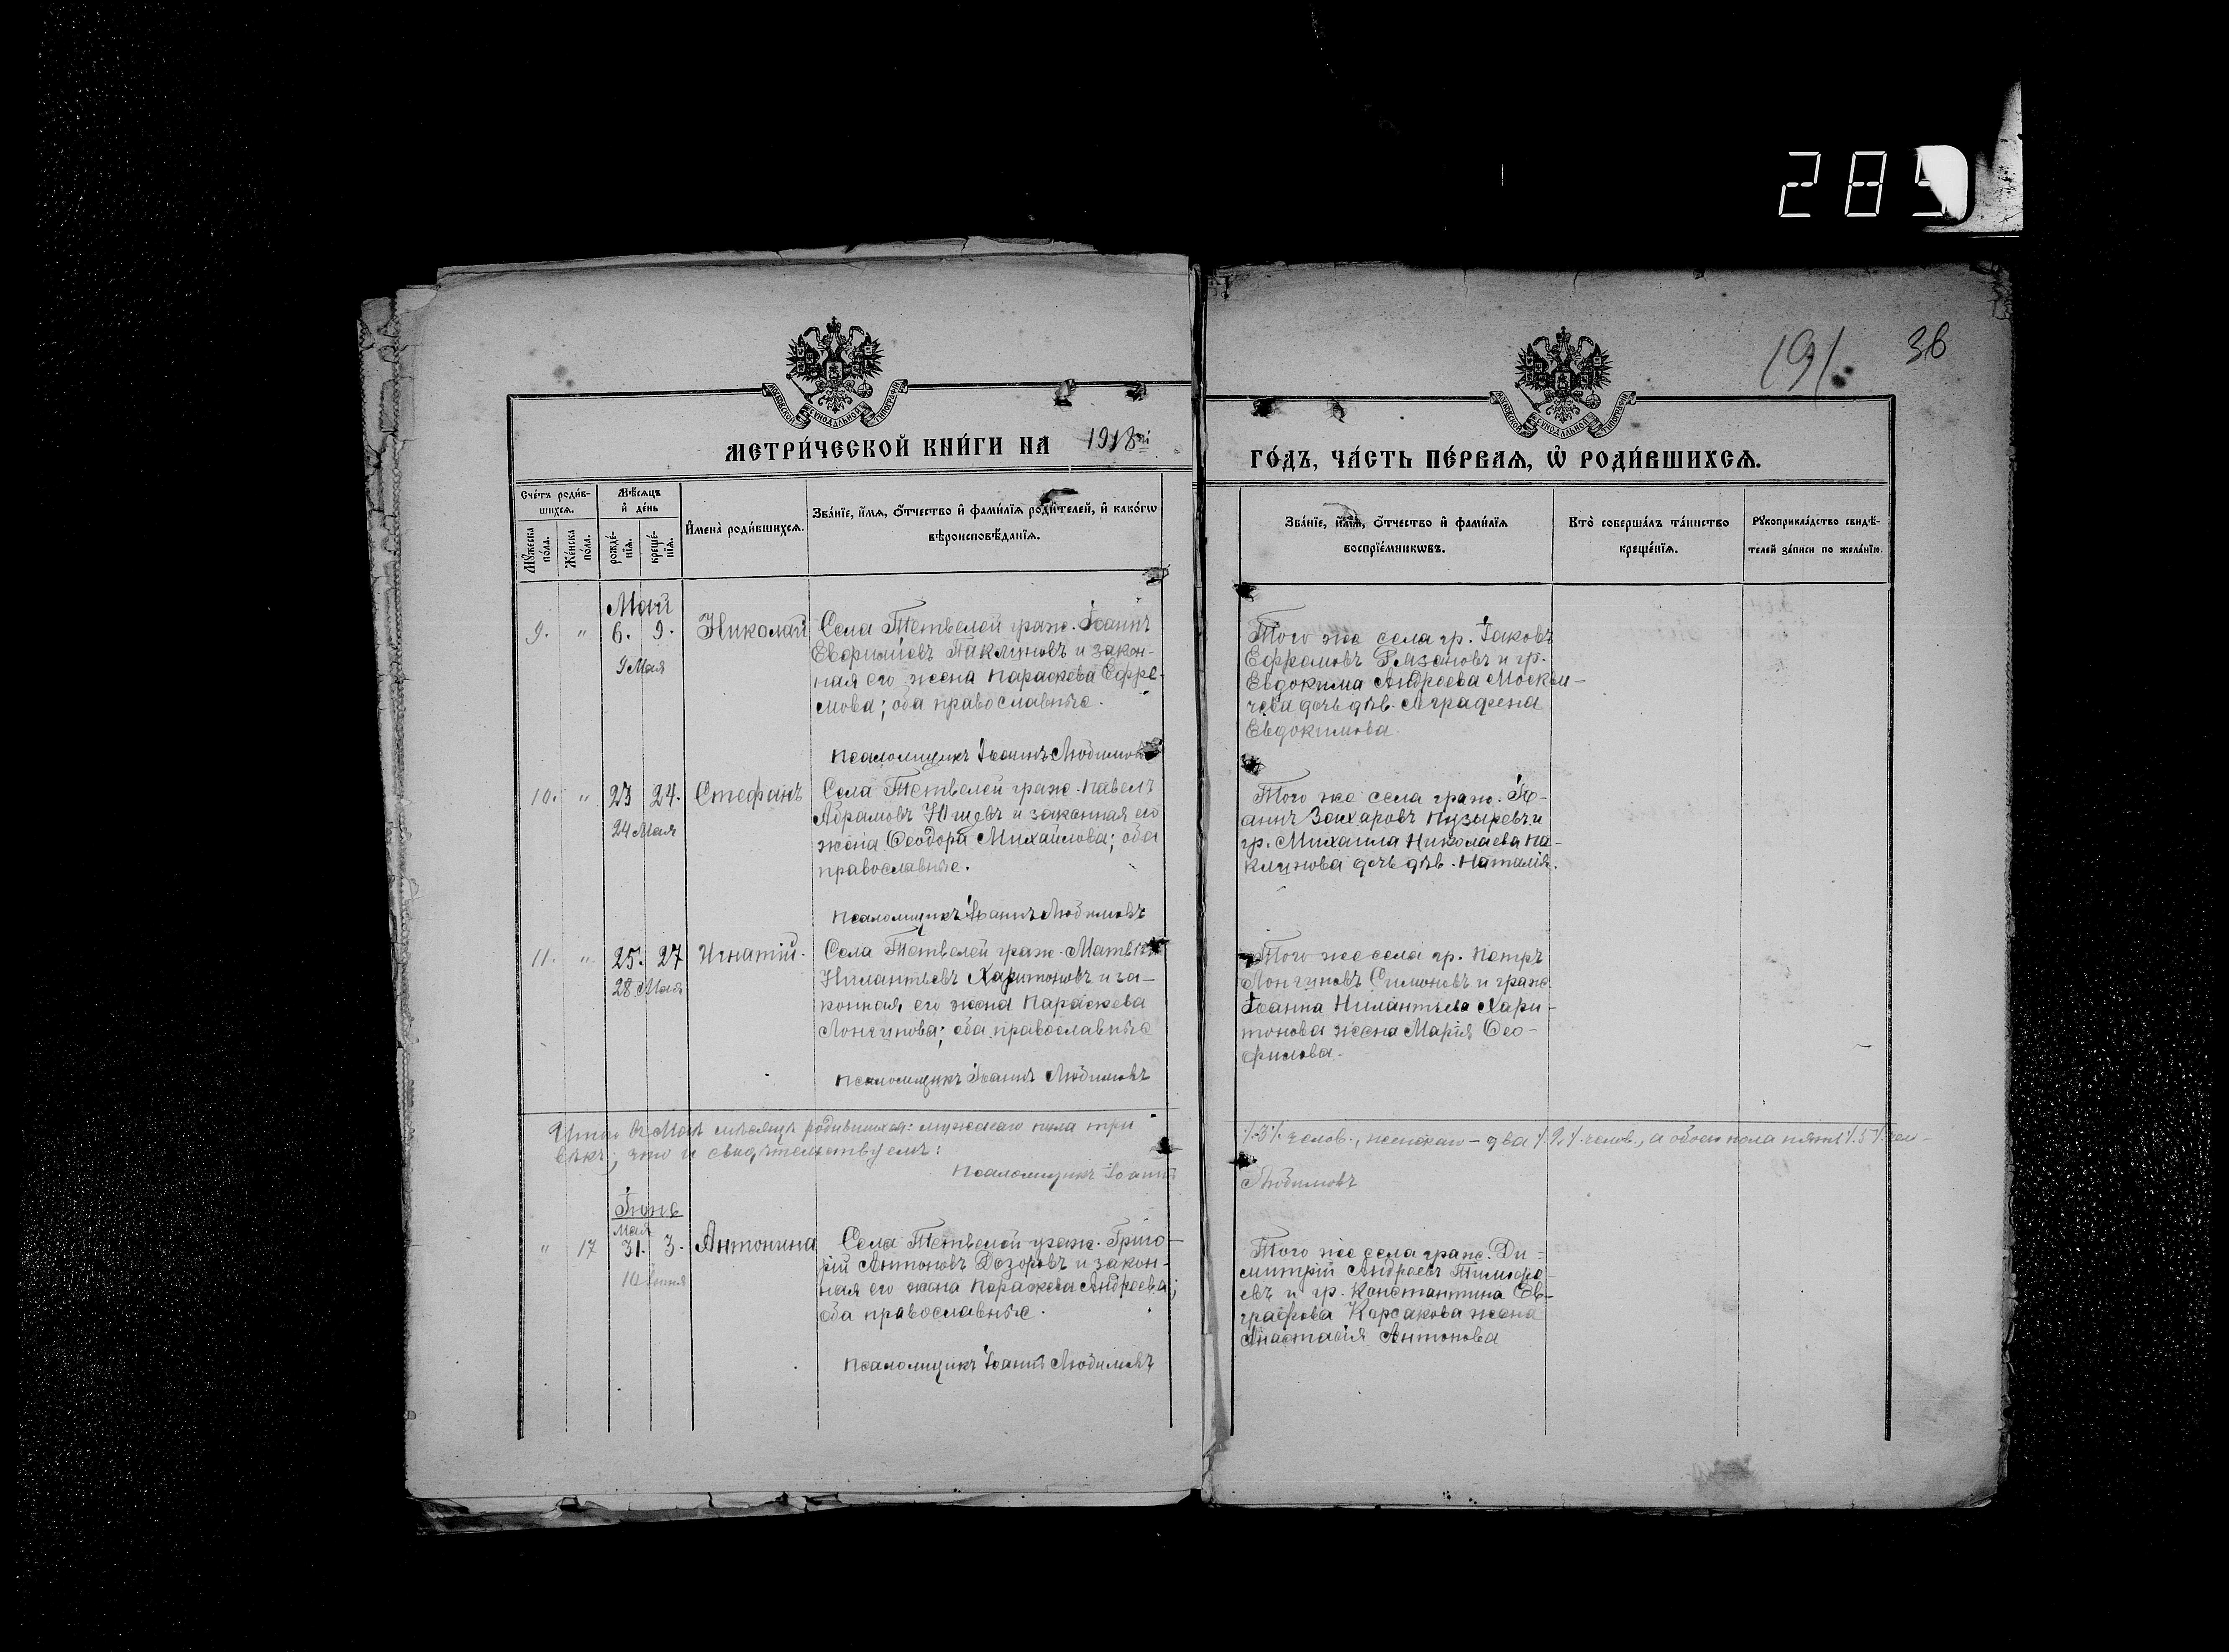 285
191.
36
МОСКОВСКОЙ СѴНОДАЛЬНОЙ ТИПОГРАФІИ
МОСКОВСКОЙ СѴНОДАЛЬНОЙ ТИПОГРАФІИ
МЕТРИ́ЧЕСКОЙ КНИ́ГИ НА 1918й
ГО́ДЪ, ЧА́СТЬ ПЕ́РВАЯ, Ѡ РОДИ́ВШИХСЯ.
Сче́тъ роди́в-
шихся.
Мѣ́сяцъ
и де́нь
Му́жеска
по́ла.
Же́нска
по́ла.
рожде́-
нїя.
креще́-
нїя.
Имена̀ роди́вшихся.
Зва́нїе, и́мя, о́тчество и фами́лїя роди́телей, и како́гѡ
вѣроисповѣ́данїя.
Зва́нїе, и́мя, о́тчество и фами́лїя
воспрїе́мникѡвъ.
Кто̀ соверша́лъ та́инство
креще́нїя.
Рукоприкла́дство свидѣ́-
телей за́писи по жела́нїю.
Май
9. " 6. 9. Николай
9 Мая
Села Тетвелей граж. Іоаннъ
Евфиміевъ Паклиновъ и закон-
ная его жена Параскева Ефре-
мова; оба православные.
Псаломщикъ Іоаннъ Любимовъ
Того же села гр. Іаковъ
Ефремовъ Рязановъ и гр.
Евдокима Андреева Москви-
чева дочь дѣв. Аграфена
Евдокимова.
10. " 23 24. Стефанъ
24 Мая
Села Тетвелей граж. Павелъ
Абрамовъ и законная его
жена Ѳеодора Михайлова; оба
православные.
Псаломщикъ Іоаннъ Любимовъ
Того же села граж. Іо-
аннъ Захаровъ Пузыревъ и
гр. Михаила Николаева Па-
клинова дочь дѣв. Наталія.
11. " 25. 27 Игнатій.
28 Мая
Села Тетвелей граж. Матвѣй
Нилантьевъ Харитоновъ и за-
конная его жена Параскева
Лонгинова; оба православные
Псаломщикъ Іоаннъ Любимовъ
Того же села гр. Петръ
Лонгиновъ Симоновъ и граж.
Іоанна Нилантьева Хари-
тонова жена Марія Ѳео-
филова.
Итого въ Маѣ мѣсяцѣ родившихся: мужскаго пола три
/.3/. челов., женскаго - два /.2./. челов., а обоего пола пять /.5/. чело-
вѣкъ; что и свидѣтельствуемъ:
Псаломщикъ Іоаннъ
Любимовъ
Іюнь
Мая
" 17 31. 3. Антонина
10 Іюня
Села Тетвелей граж. Григо-
рій Антоновъ Дозоровъ и закон-
ная его жена Параскева Андреева;
оба православные.
Псаломщикъ Іоаннъ Любимовъ
Того же села граж. Ди-
митрій Андреевъ Тимофе-
евъ и гр. Константина Ев-
графова Корсакова жена
Анастасія Антонова